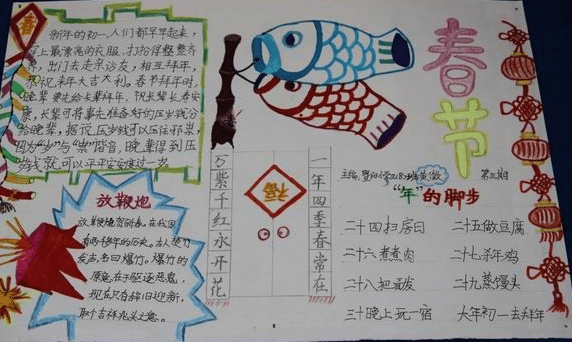 春
新年的初一,人们都早早起来,
穿上最漂亮的衣服,打扮得整整齐
齐,出门去走亲访友,相互拜年,
恭祝来年大吉大利。春节拜年时,
晚辈要先给长辈拜年,祝长辈长寿安
康,长辈可将事先准备好的压岁钱分
给晚辈,据说压岁钱可以压住邪祟,
因为“岁”与“祟”谐音,晚辈得到压
岁钱就可以平平安安度过一岁。
春节
主编:
第三期
“年”的脚步
二十四扫房日
二十五做豆腐
二十六煮煮肉
二十七杀年鸡
二十八把面发
二十九蒸馒头
三十晚上玩一宿
大年初一去拜年
一年四季春常在
万紫千红永开花
福
放鞭炮
放鞭炮贺新春,在我国
有两千多年的历史。
发声,名曰爆竹。爆竹的
原意在于驱逐恶鬼,
现在只有辞旧迎新,
取个吉祥兆头之意。